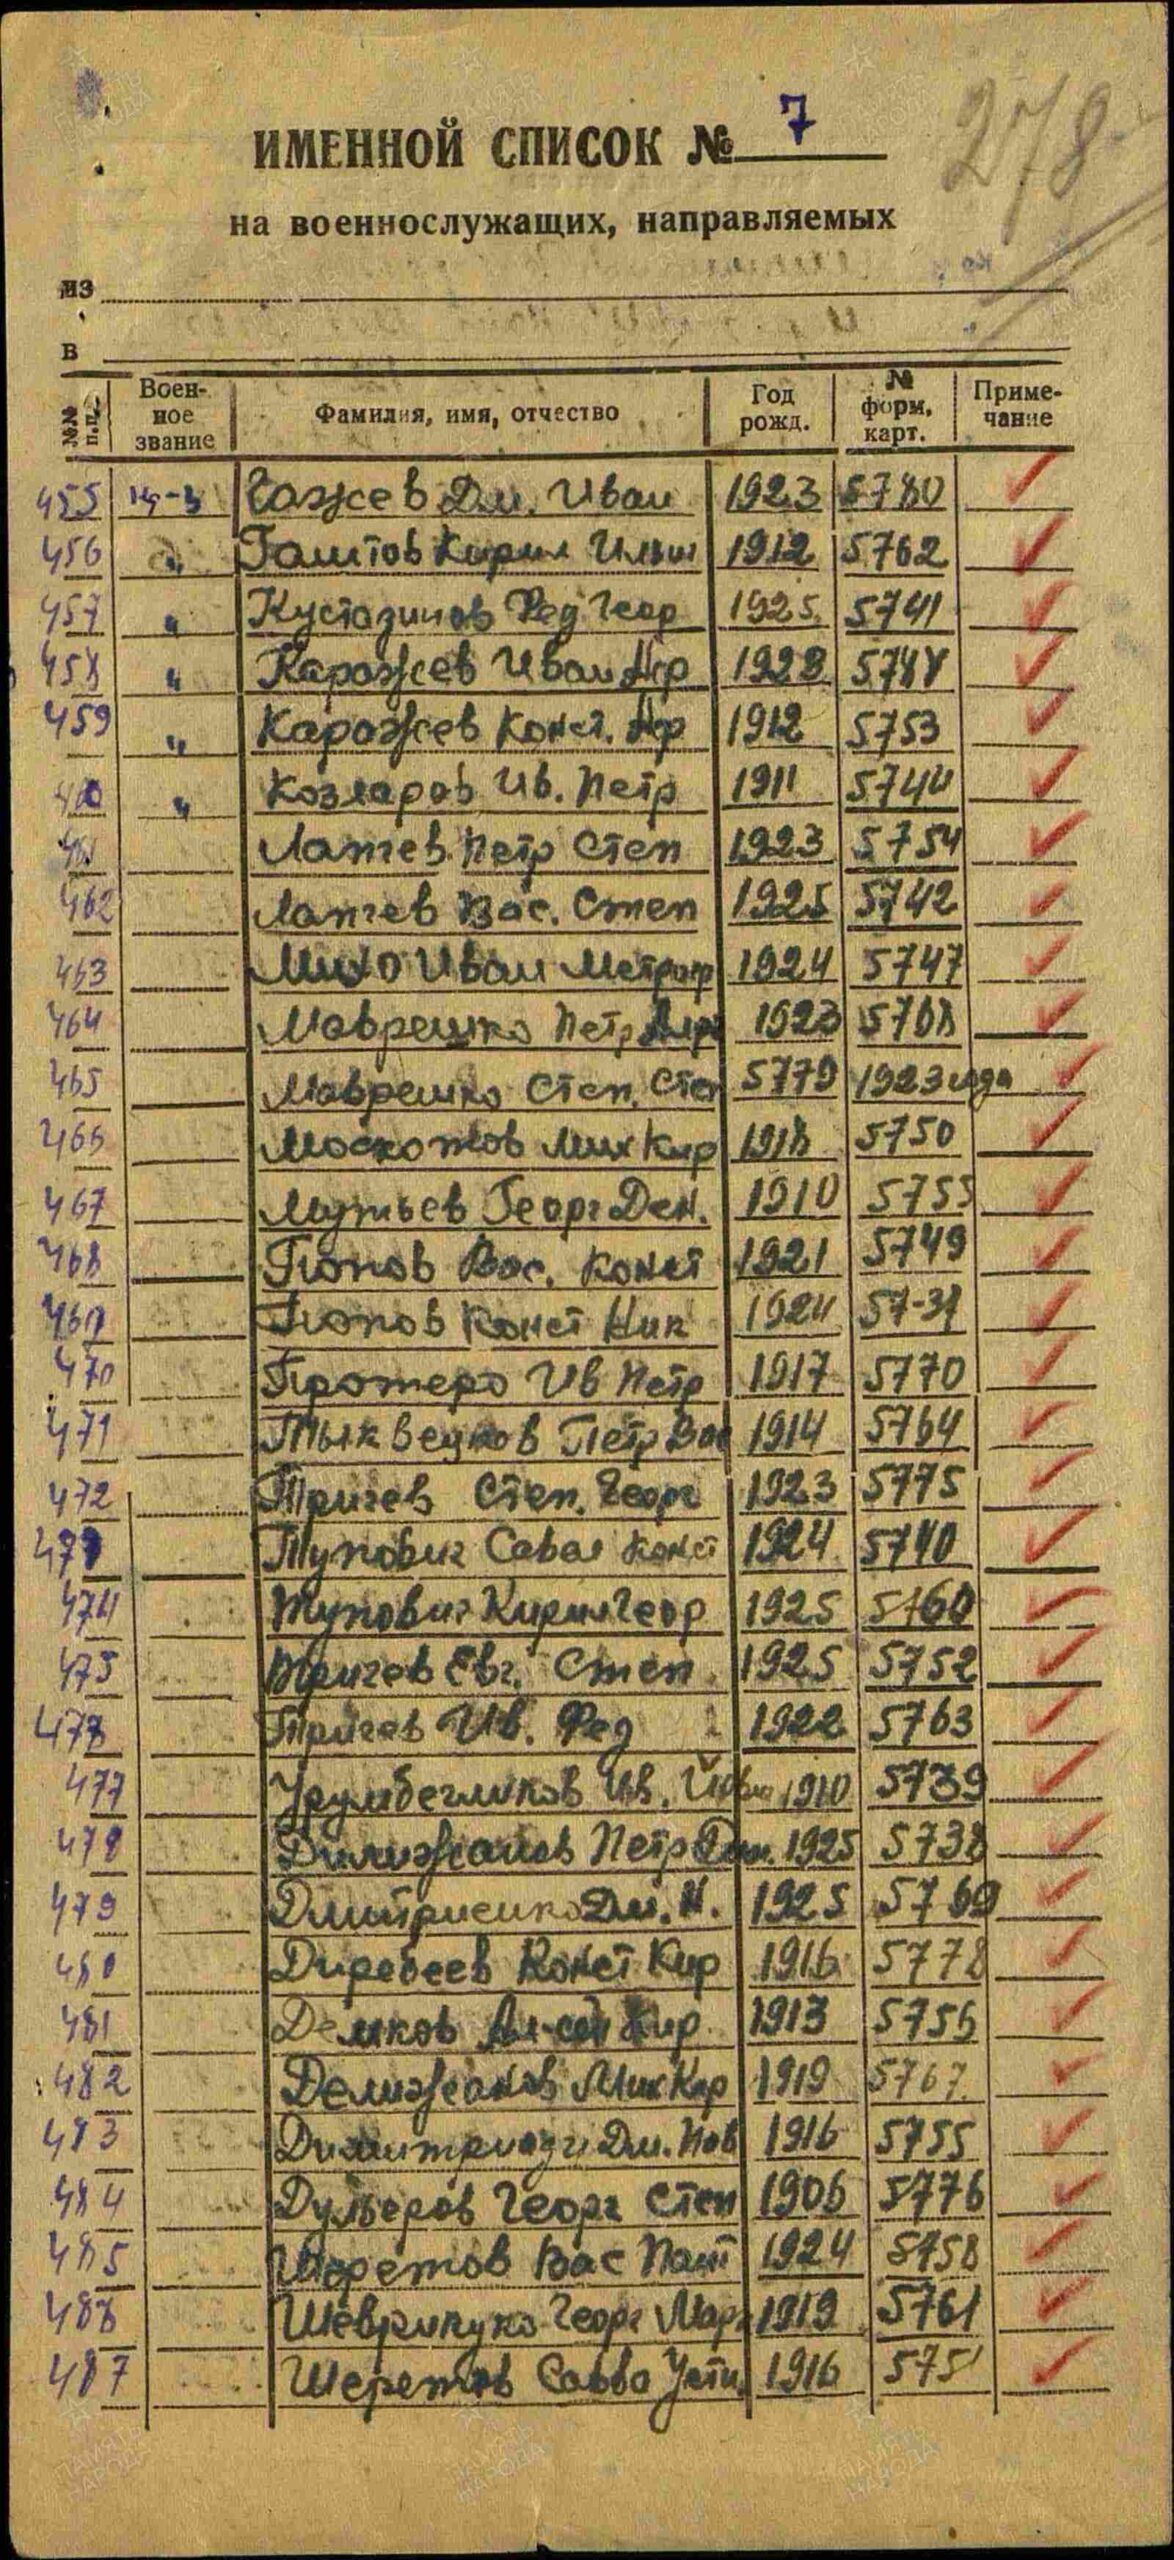 278
ИМЕННОЙ СПИСОК № 7
на военнослужащих, направляемых
из
в
№№ п.п. Воен-ное звание Фамилия, имя, отчество Год рожд. № форм. карт. Приме-чание
455 Гажев Дм. Иван 1923 5780
456 " Гаитов Кирил Ильич 1912 5762
457 " Кустазинов Фед Геор 1925 5741
458 " Каражев Иван 1923
459 " Каражев Конст. 1912 5753
460 " Козларов Ив. Петр 1911 5744
461 Лапчев Петр Степ 1923 5754
462 Лапчев Вас. Степ 1925 5742
463 Михо Иван Митроф 1924 5747
464 Маврешко Петр 1923 5768
465 Маврешко Степ. Степ 5779 1923 года
466 Москожов Мих Кир 1918 5750
467 Мутьев Георг Дем. 1910 5755
468 Попов Вас. Конст 1921 5749
469 Попов Конст Ник 1924
470 Протеро Ив Петр 1917 5770
471 Петр Вас 1914 5764
472 Тричев Степ. Георг 1923 5775
473 Тупович Савва Конст 1924 5740
474 Тупович Кирил Геор 1925 5760
475 Тричев Евг. Степ 1925 5752
Тричев Ив. Фед 1922 5763
477 Урумбегликов Ив. 1910 5739
478 Дилижанов Петр 1925 5738
479 Дмитриенко Дм. Н. 1925 5769
480 Диребеев Конст Кир 1916 5778
481 Демков Кир 1913 5756
482 Делижанов Мих Кир 1919 5767
483 Димитриади Дм. Пав 1916 5755
484 Дульгеров Георг Степ 1906 5776
485 Шеретов Вас Пант 1924 5758
486 Шеврикуко Георг Марк 1919 5761
487 Шеретов Савва Усти. 1916 575